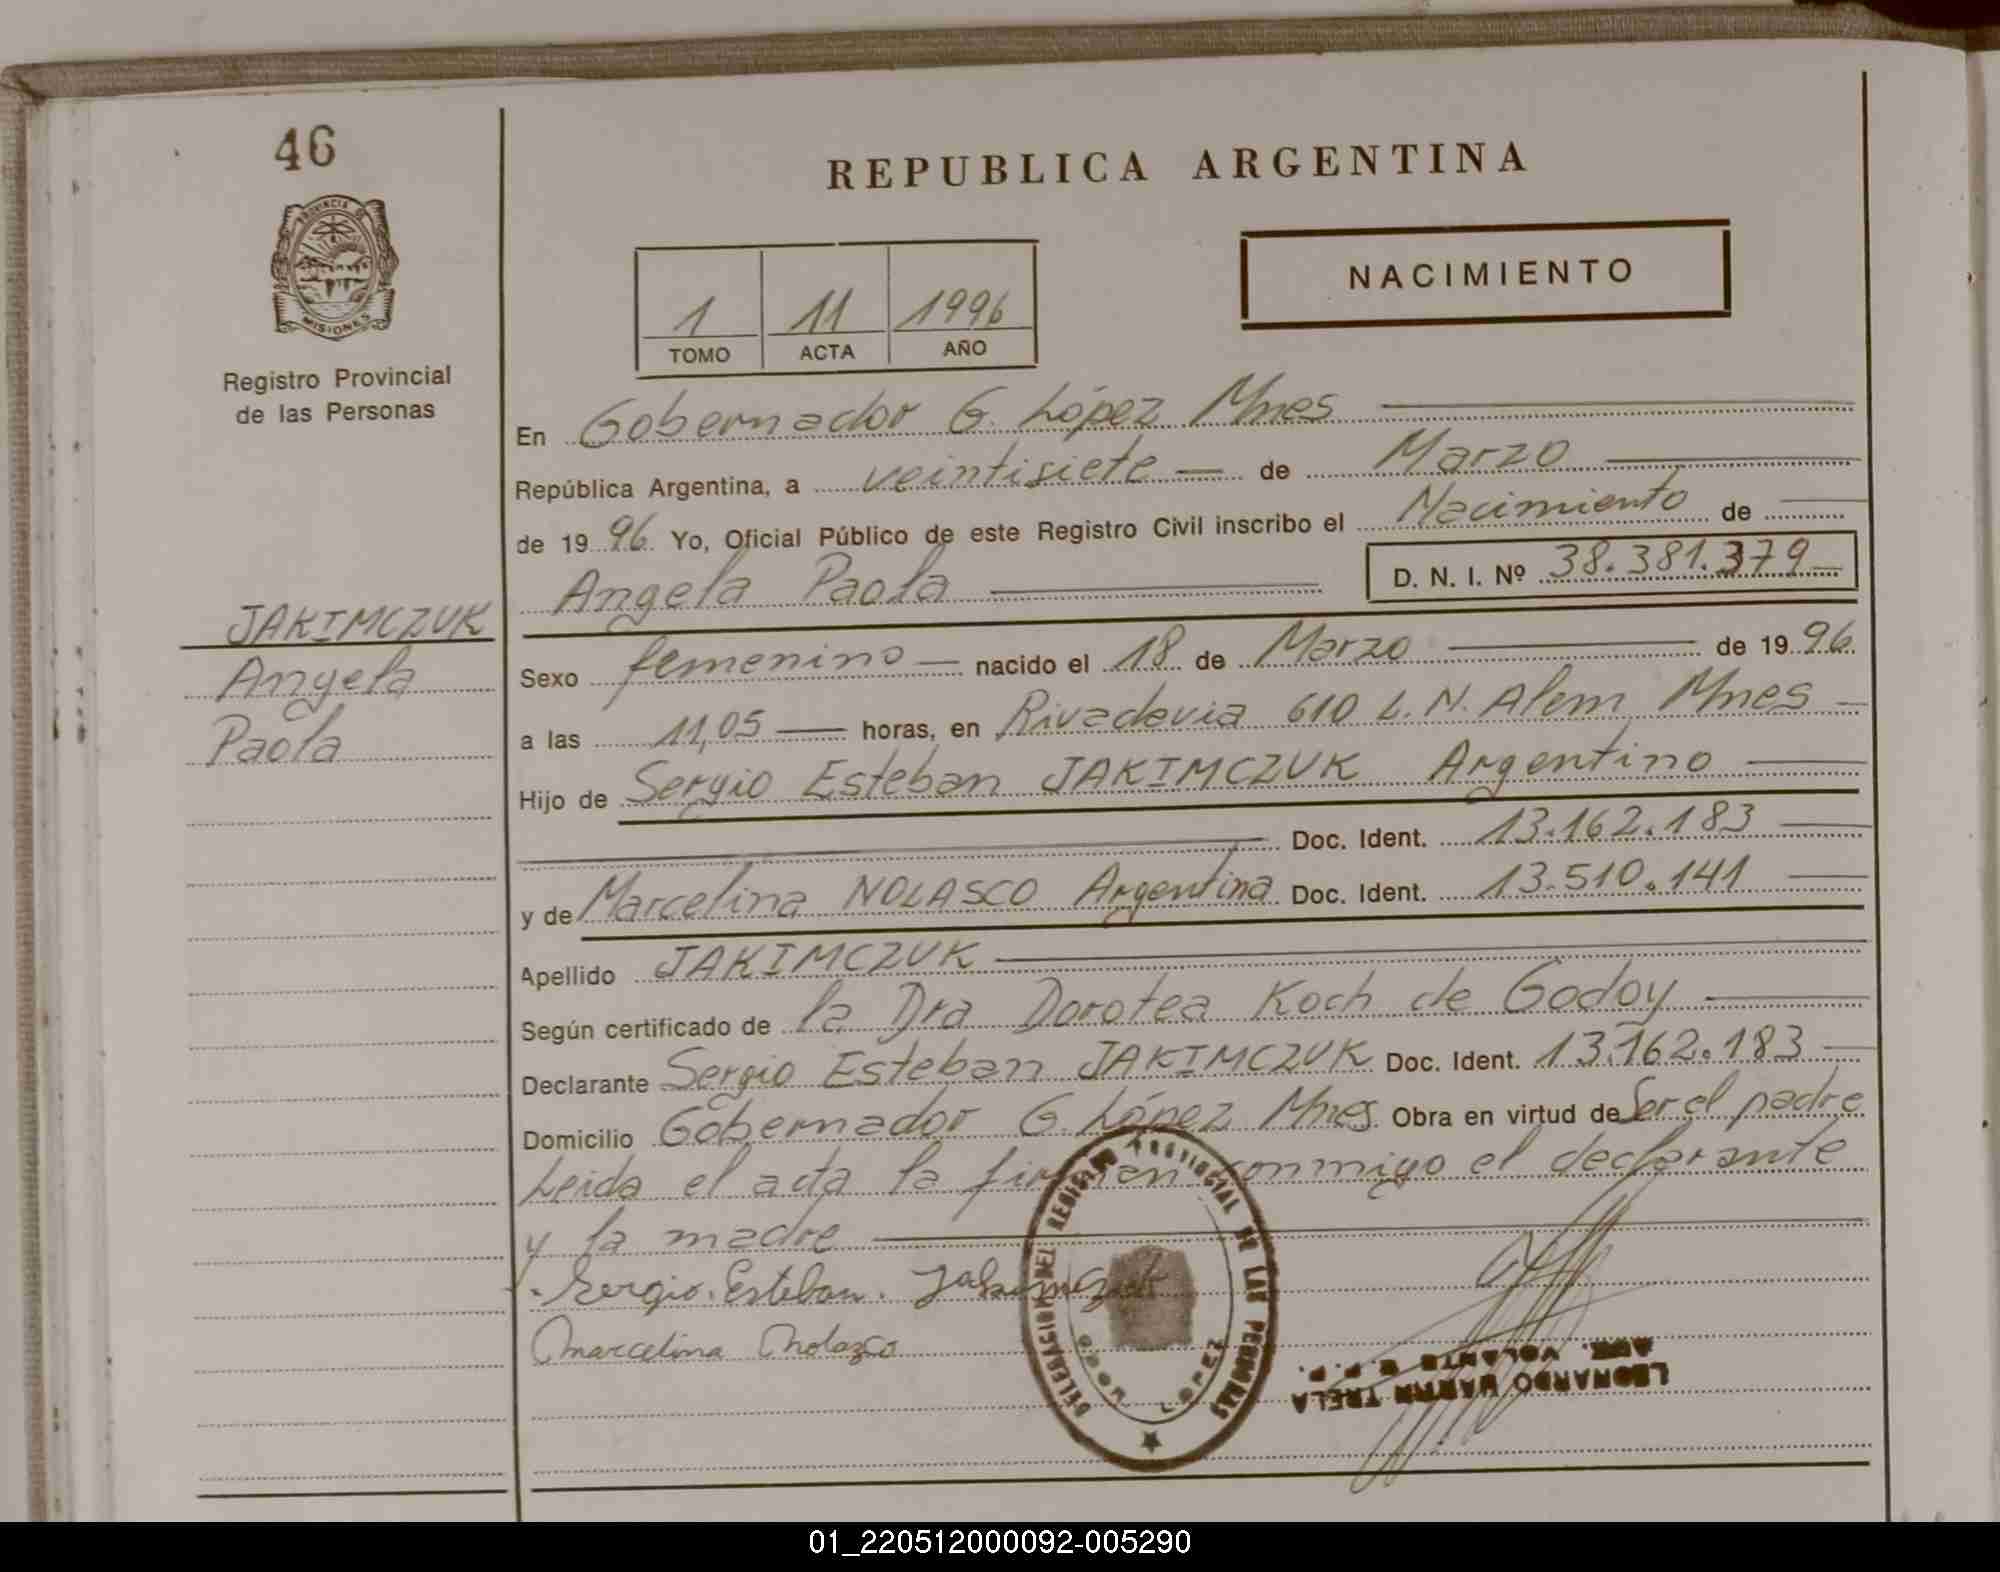 46
REPUBLICA ARGENTINA
PROVINCIA DE
MISIONES
Registro Provincial
de las Personas
1 11 1996
TOMO ACTA AÑO
NACIMIENTO
En Gobernador G. López Mnes
República Argentina, a veintisiete de Marzo
de 1996 Yo, Oficial Público de este Registro Civil inscribo el Nacimiento de
Angela Paola D. N. I. Nº 38.381.379
JAKIMCZUK
Angela
Paola
Sexo femenino nacido el 18 de Marzo de 1996
a las 11,05 horas, en Rivadavia 610 L. N. Alem Mnes
Hijo de Sergio Esteban JAKIMCZUK Argentino
Doc. Ident. 13.162.183
y de Marcelina NOLASCO Argentina Doc. Ident. 13.510.141
Apellido JAKIMCZUK
Según certificado de la Dra Dorotea Koch de Godoy
Declarante Sergio Esteban JAKIMCZUK Doc. Ident. 13.162.183
Domicilio Gobernador G. López Mnes Obra en virtud de Ser el padre
Leida el acta la firman conmigo el declarante
y la madre
Sergio. Esteban. Jakimczuk
Marcelina Nolazco
DELEGACION DEL REGISTRO PROVINCIAL DE LAS PERSONAS
LOPEZ
LEONARDO MARTIN TRELA
AUX. VOLANTE R.P.P.
01_220512000092-005290